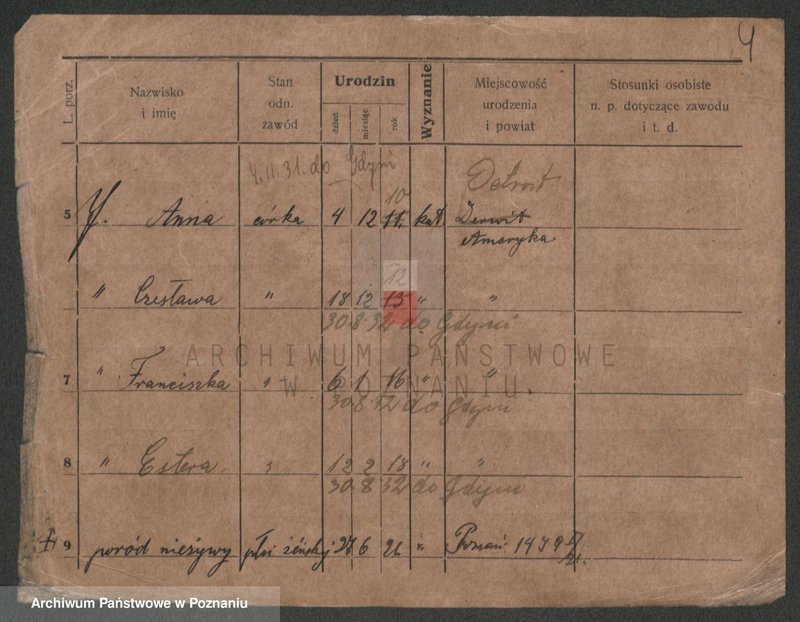 4
L. porz.
Nazwisko
i imię
Stan
odn.
zawód
Urodzin
dzień
miesiąc
rok
Wyznanie
Miejscowość
urodzenia
i powiat
Stosunki osobiste
n. p. dotyczące zawodu
i t. d.
4.11.31. do Gdyni
10
Detroit
5 Anna córka 4 12 11. kat. Derwit
Ameryka
12
" Czesława " 18 12 13 " "
30.8.32 do Gdyni
ARCHIWUM PAŃSTWOWE
W POZNANIU
7 " Franciszka " 6 1 16 " "
30.8.32 do Gdyni
8 " Estera " 12 2 18 " "
30.8.32 do Gdyni
9 poród nieżywy płci żeńskj 27 6 21 Poznań
Archiwum Państwowe w Poznaniu